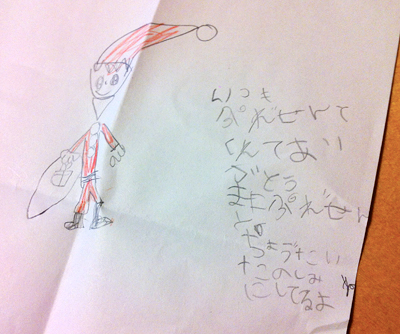 いつも
ぷれぜんと
くれてあり
がとう
またぷれぜん
と
ちょうだい
たのしみ
にしてるよ